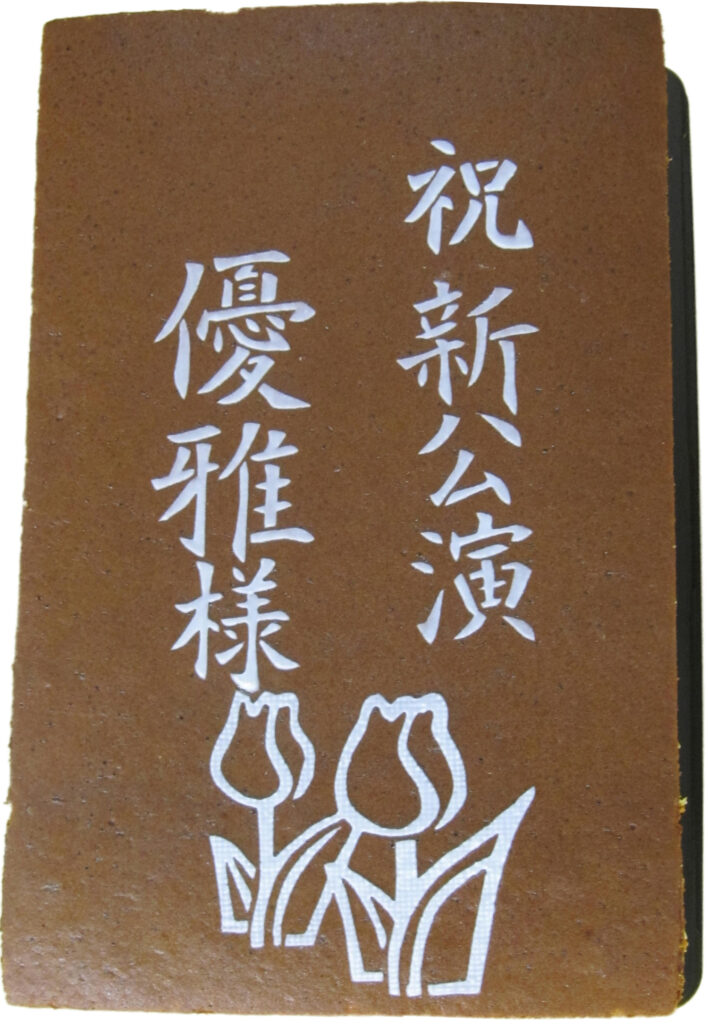 祝 新公演
優雅様